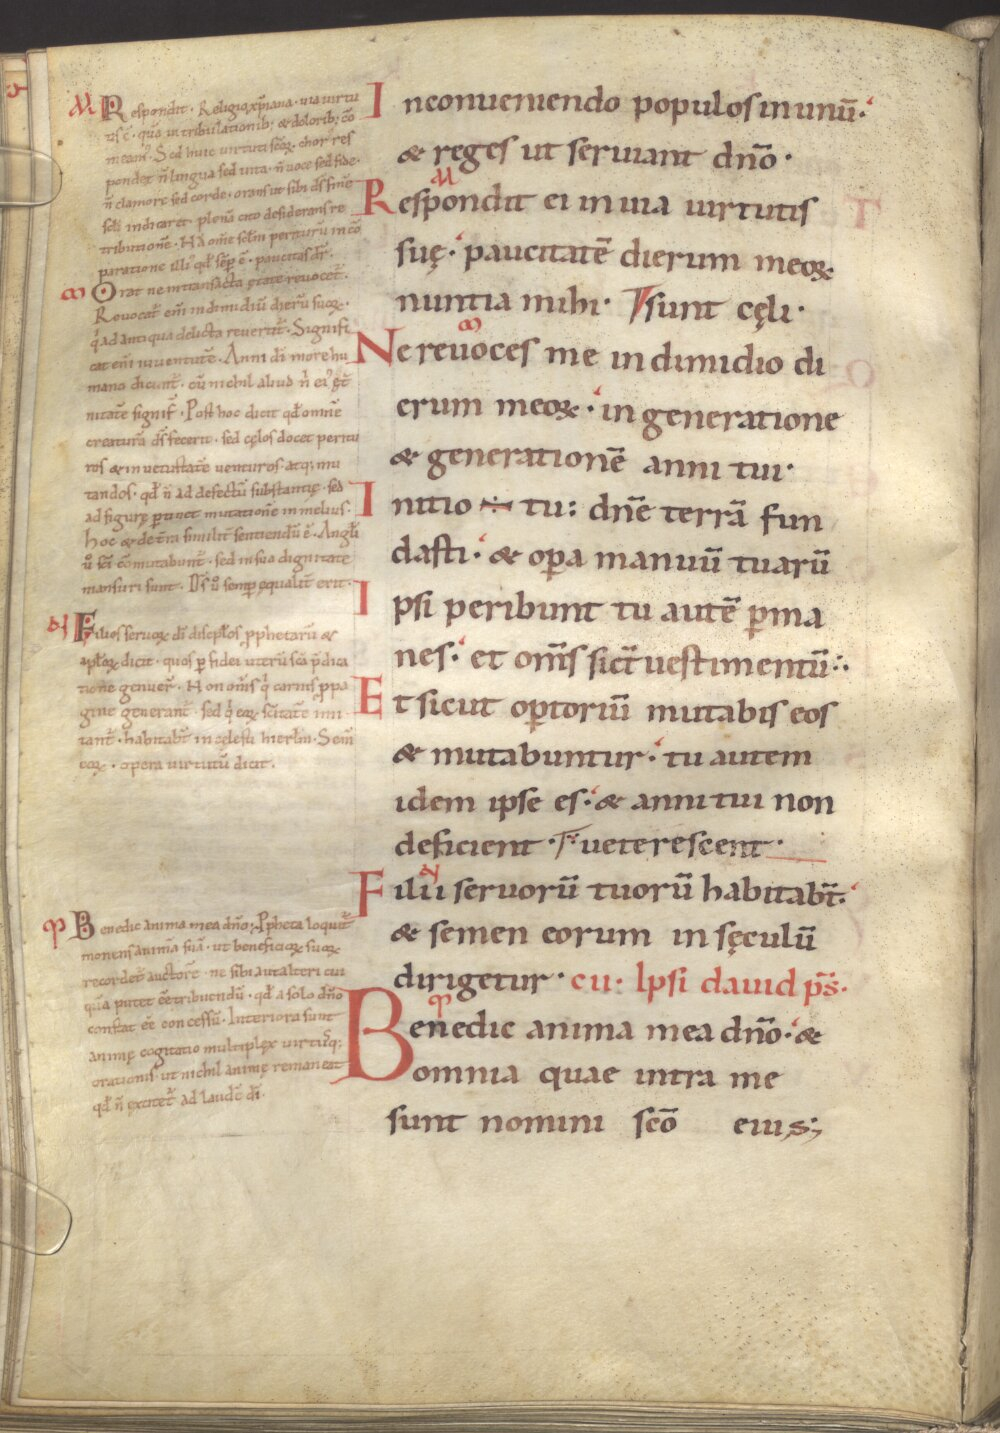 Respondit · Religio xp̄iana · in uia uirtu
tis ē · quia in tribulationib; & dolorib; cō
meam᷒ · Sed huic uirtuti scōꝝ · chor᷒ res
pondet n̄ lingua sed uita · n̄ uoce sed fide ·
n̄ clamore sed corde · orans ut sibi ds̄ finē
scl̄i indicaret · plenā cito desiderans re
tributionē · Nā om̄e scl̄m periturū in cō
paratione illi᷒ qd̄ sēp ē · paucitas dr̄ ·
Orat ne in transacta ętate reuocet̄ ·
Reuocat̄ eni̅ in dimidiū dierū suoꝝ ·
q̇ ad antiqua delicta reuertit̄ · Signifi
cat eni̅ iuuentutē · Anni dī more hu
mano dicunt̄ · cū nichil aliud n̄ ei᷒ ęt̄
nitatē signif̄ · Post hoc dicit qd̄ omnē
creaturā ds̄ fecerit · sed cęlos docet peritu
ros & in uetustatē uenturos · atq; mu
tandos · qd̄ n̄ ad defectū substantię · sed
ad figurę ꝑtinet mutationē in melius ·
hoc & de t̄ra similit̄ sentiendū ē · Angl̄i
ū scī com̄utabunt̄ · sed in sua dignitate
mansuri sunt · Ds̄ ū semp̄ ęqualit̄ erit ·
Filios seruoꝝ dī discipl̄os ꝓphetarū &
apl̄oꝝ dicit · quos ꝑ fidei uterū scā p̄dica
tione genuer̄ · Non om̄s q̇ carnis ꝓpa
gine generant̄ · sed q̇ eoꝝ sc̄itatē imi
tant̄ · habitab̄t in cęlesti hierl̄m · Semē
eoꝝ · opera uirtutū dicit ·
Benedic anima mea dn̄o; Ppheta loquit̄
monens animā suā · ut beneficioꝝ suoꝝ
recordet̄ auctorē · ne sibi aut alteri cui
quā putet ēē tribuendū · qd̄ a solo dn̄o
constat ēē concessū · Interiora sunt
animę cogitatio multiplex uirtusq;
orationis ut nichil animę remaneat
qd̄ n̄ excitet̄ ad laudē dī ·
In conueniendo populos in unū ·
& reges ut seruiant dn̄o ·
Respondit ei in uia uirtutis
suę · paucitatē dierum meoꝝ
nuntia mihi · sunt cęli ·
Ne reuoces me in dimidio di
erum meoꝝ · in generatione
& generationē anni tui ·
Initio ÷ tu : dn̄e terrā fun
dasti · & oꝑa manuū tuarū
Ipsi peribunt tu autē ꝑma
nes · et om̄s sic̄t uestimentū ·
Et sicut oꝑtoriū mutabis eos
& mutabuntur · tu autem
idem ipse es · & anni tui non
deficient · ueterescent ·
Filii seruorū tuorū habitab̄t ·
& semen eorum in sęculū
dirigetur · cii · Ipsi dauid ps̄ ·
Benedic anima mea dn̄o · &
omnia quae intra me
sunt nomini scō eius;